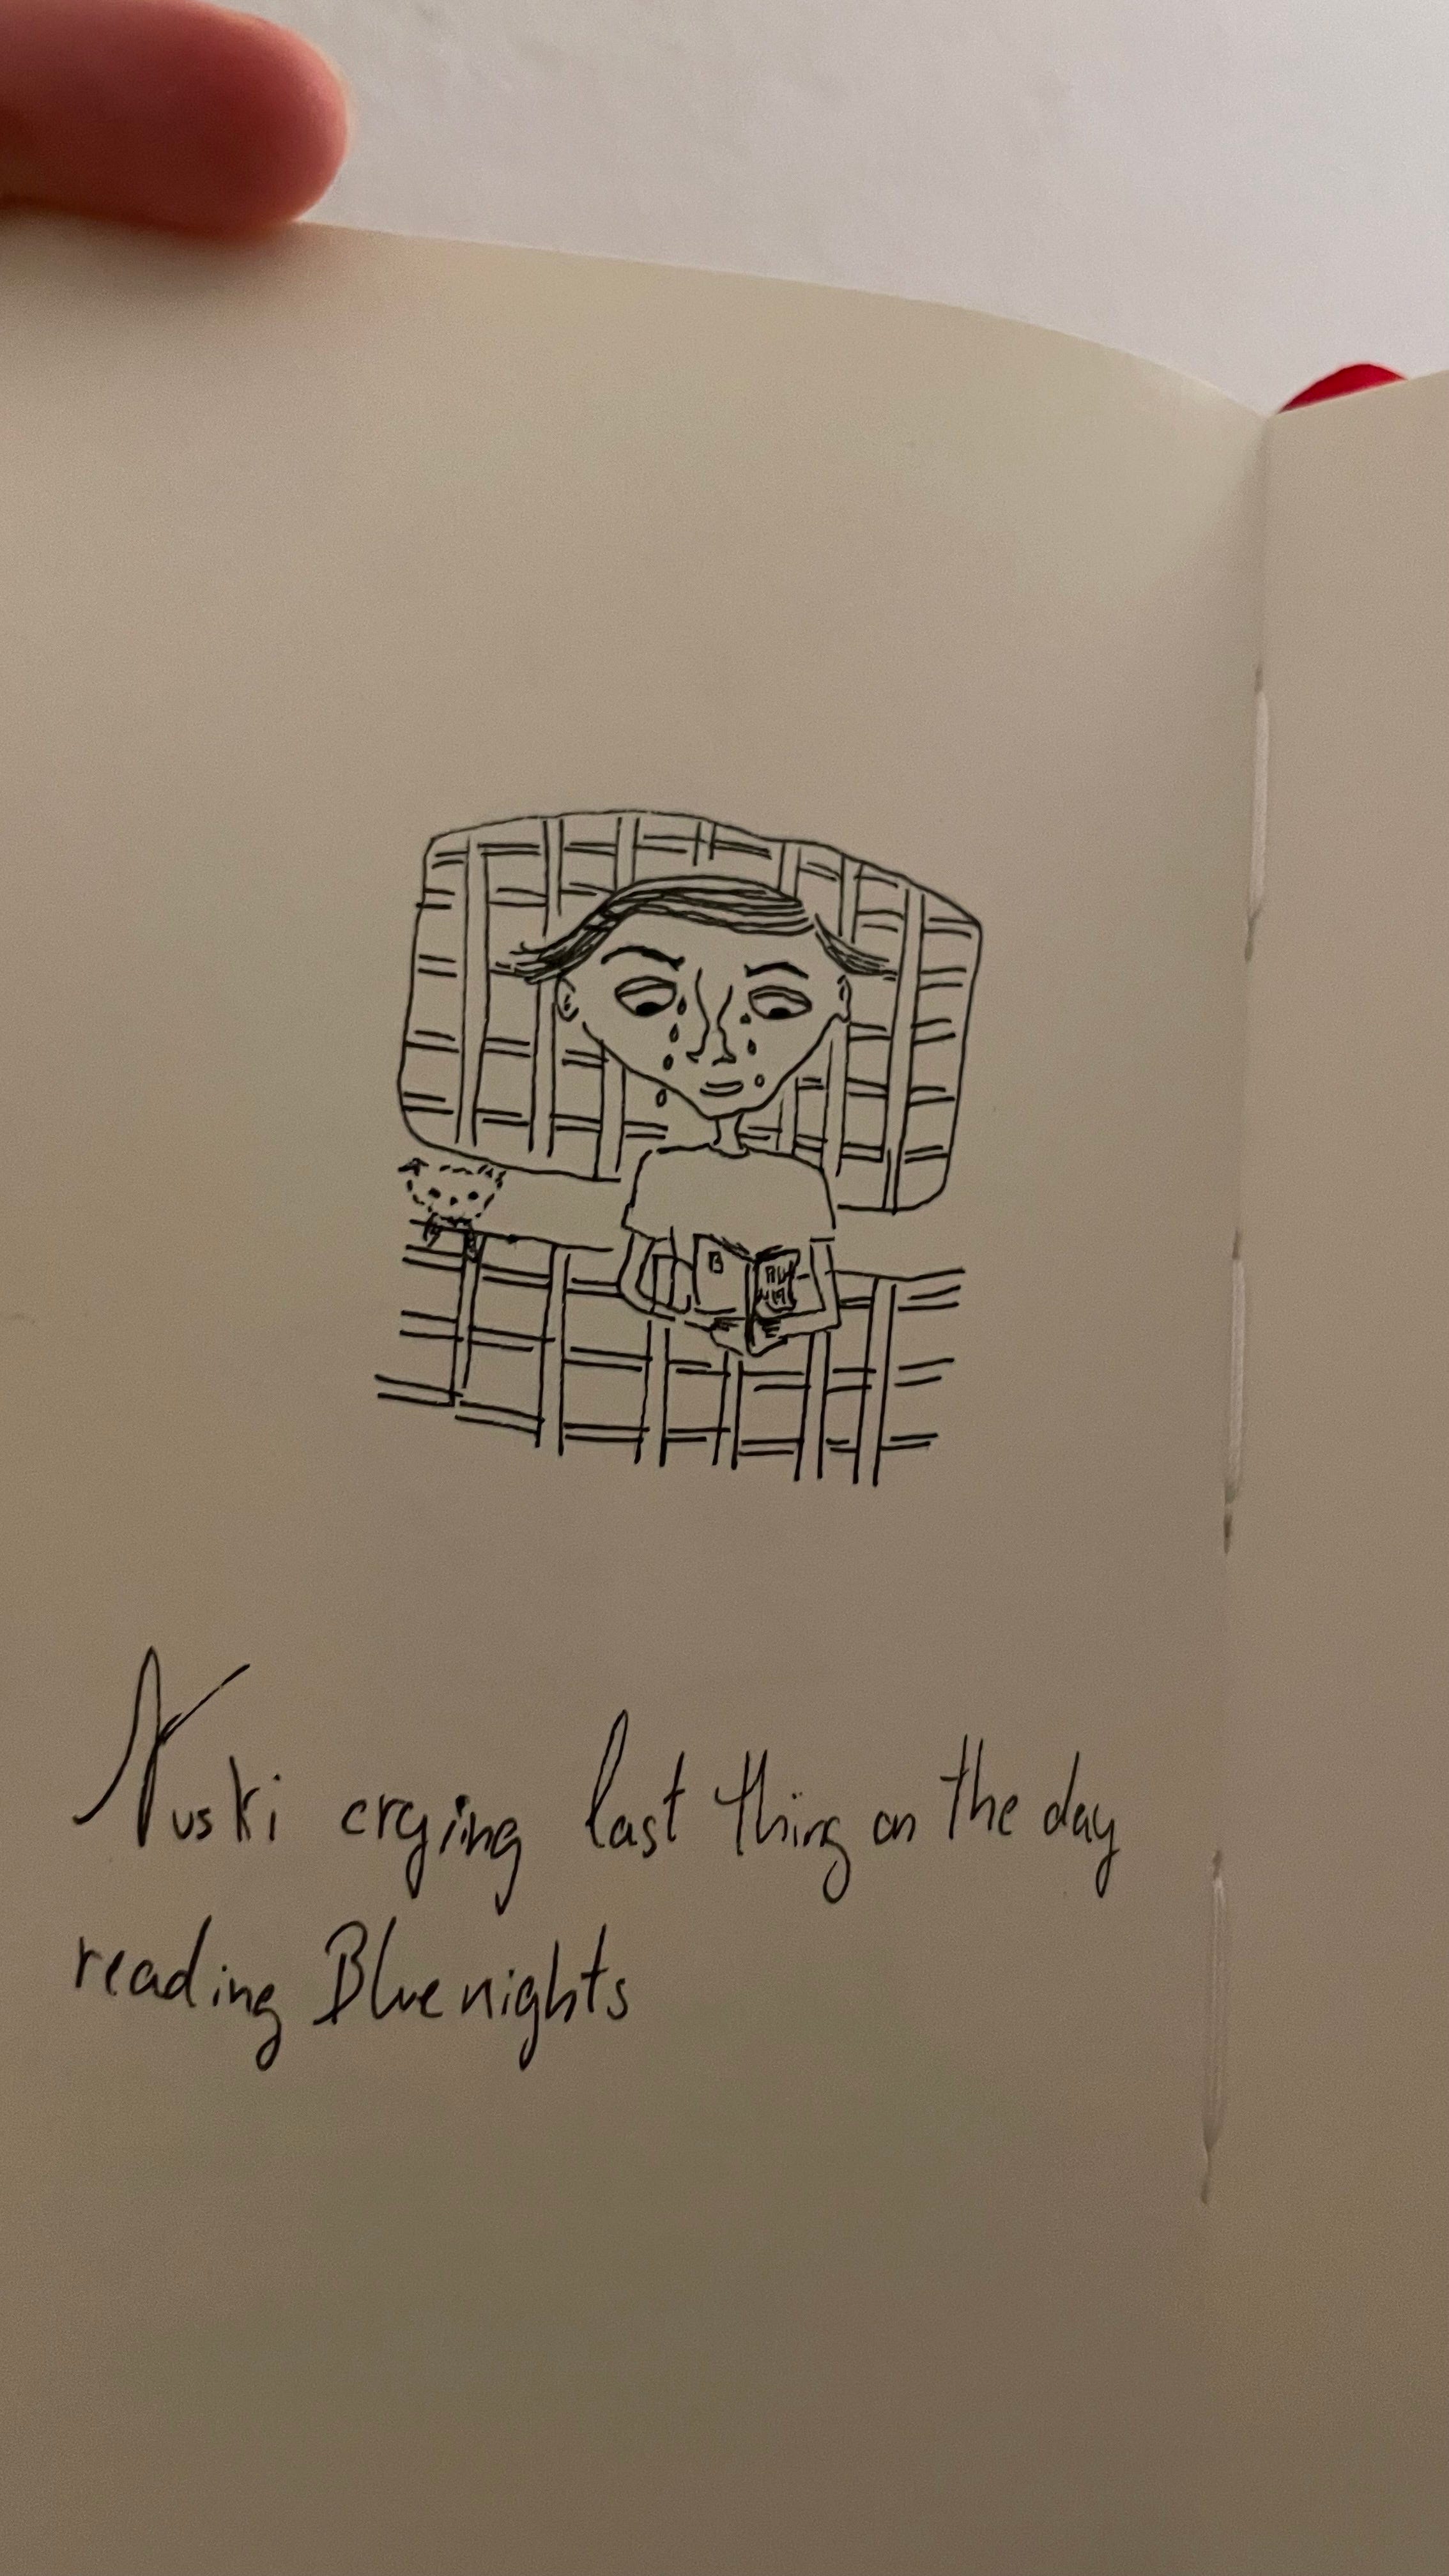 Nuski crying last thing on the day
reading Blue nights